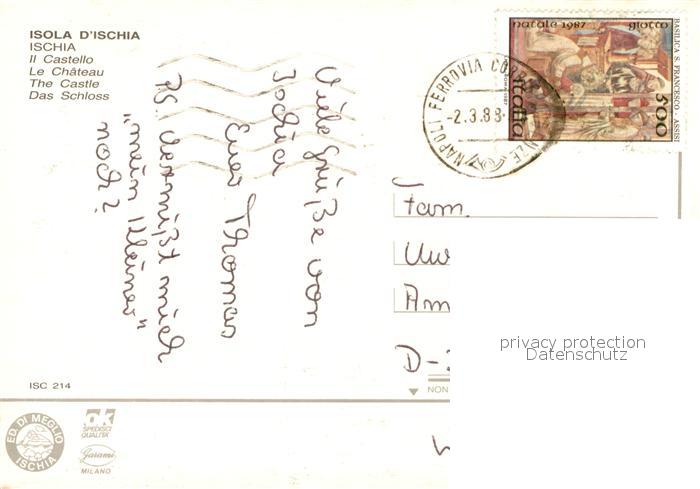 ISOLA D'ISCHIA
ISCHIA
Il Castello
Le Château
The Castle
Das Schloss
Viele Grüße von
Ischia
Euer Thomas
PS. Vermißt mich
"mein Kleines"
noch?
natale 1987 giotto
BASILICA S. FRANCESCO - ASSISI
500
italia
NAPOLI FERROVIA
-2.3.88
Fam.
Uw
Am
D-
privacy protection
Datenschutz
NON
ISC 214
ED. DI MEGLIO
ISCHIA
ok
SPEDISCI
QUALITÀ
Garami
MILANO